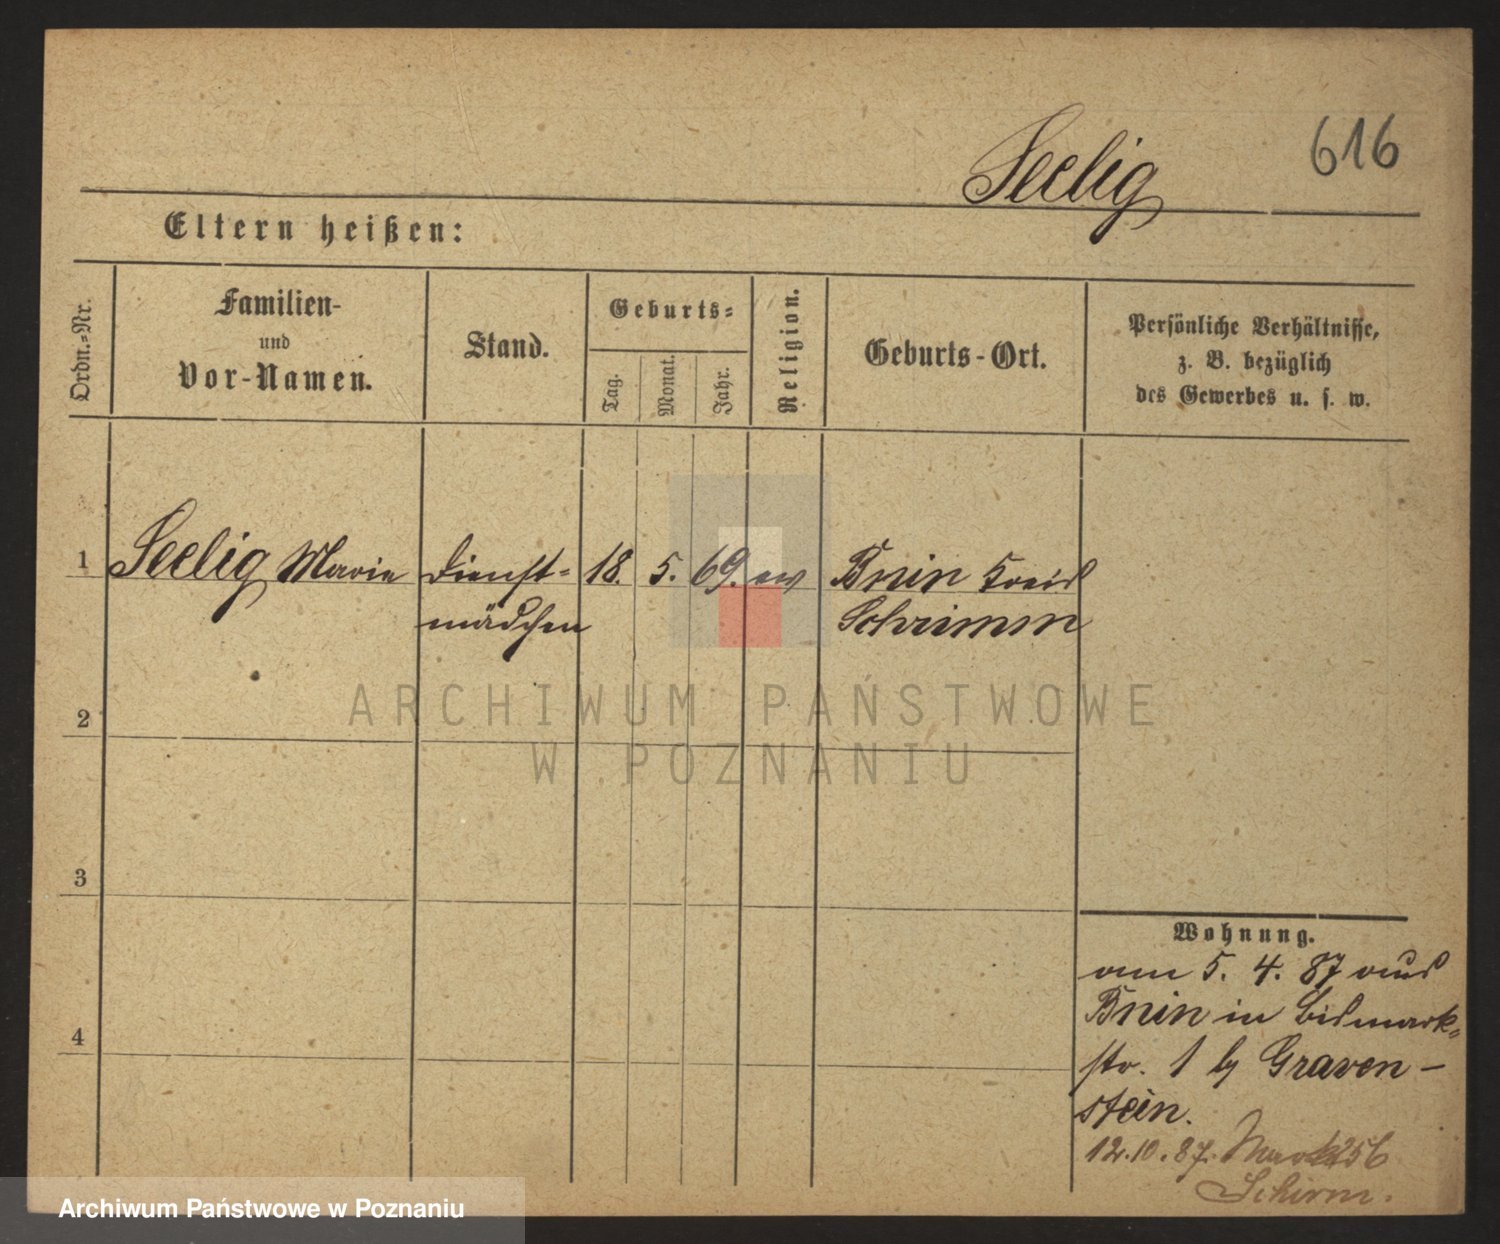 616
Seelig
Eltern heißen:
Ordn.-Nr.
Familien-
und
Vor-Namen.
Stand.
Geburts-
Tag.
Monat.
Jahr.
Religion.
Geburts-Ort.
Persönliche Verhältnisse,
z. B. bezüglich
des Gewerbes u. s. w.
1 Seelig Marie Dienst- 18. 5. 69. ev Bnin Kreis
mädchen Schrimm
2
3
4
Wohnung.
am 5. 4. 87 aus
Bnin in Bismark-
str. 1 by Graven-
stein.
12.10.87. Markt 56
Schirm.
ARCHIWUM PAŃSTWOWE
W POZNANIU
Archiwum Państwowe w Poznaniu